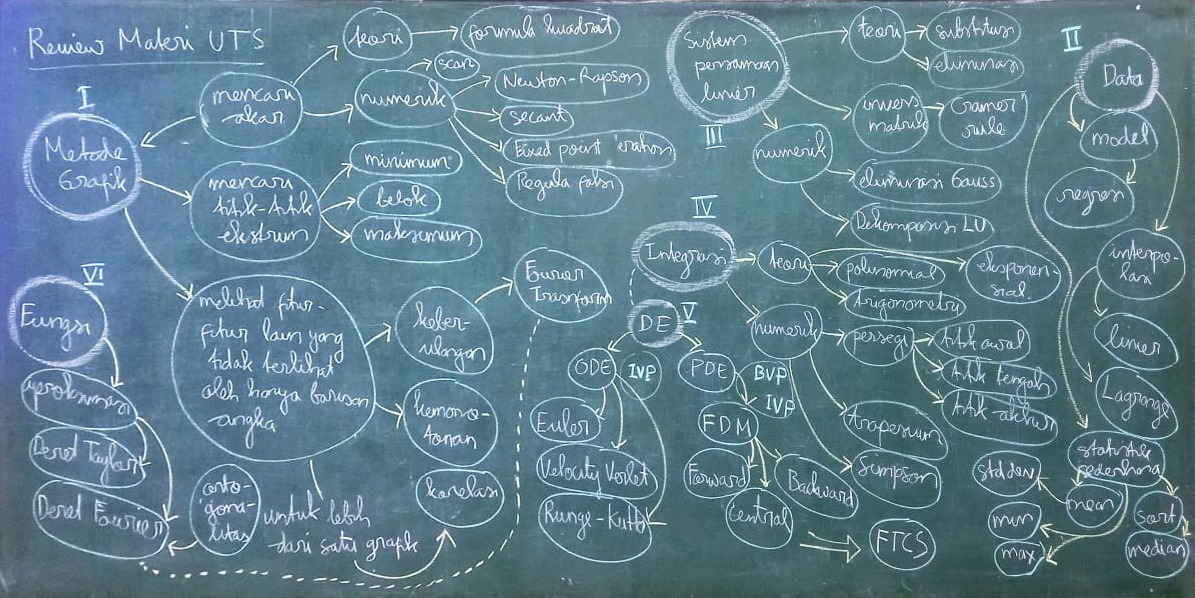 Review Materi UTS
I
Metode
Grafik
mencari
akar
teori
formula kuadrat
numerik
scan
Newton-Rapson
secant
Fixed point iteration
Regula falsi
mencari
titik-titik
ekstrum
minimum
belok
maksimum
melihat fitur-
fitur lain yang
tidak terlihat
oleh hanya barisan
angka
keber-
ulangan
Fourier
Transform
kemono-
tonan
korelasi
untuk lebih
dari satu grafik
VI
Fungsi
aproksimasi
Deret Taylor
Deret Fourier
orto-
gona-
litas
III
Sistem
persamaan
linier
teori
substitusi
eliminasi
invers
matriks
Cramer'
rule
numerik
eliminasi Gauss
Dekomposisi LU
IV
Integrasi
teori
polinomial
eksponen-
sial
trigonometry
numerik
persegi
titik awal
titik tengah
titik akhir
trapesium
Simpson
V
DE
ODE
IVP
Euler
Velocity Verlet
Runge-Kutta
PDE
BVP
IVP
FDM
Forward
Central
Backward
FTCS
II
Data
model
regresi
interpo-
lasi
linier
Lagrange
statistik
sederhana
std dev
mean
min
max
sort
median